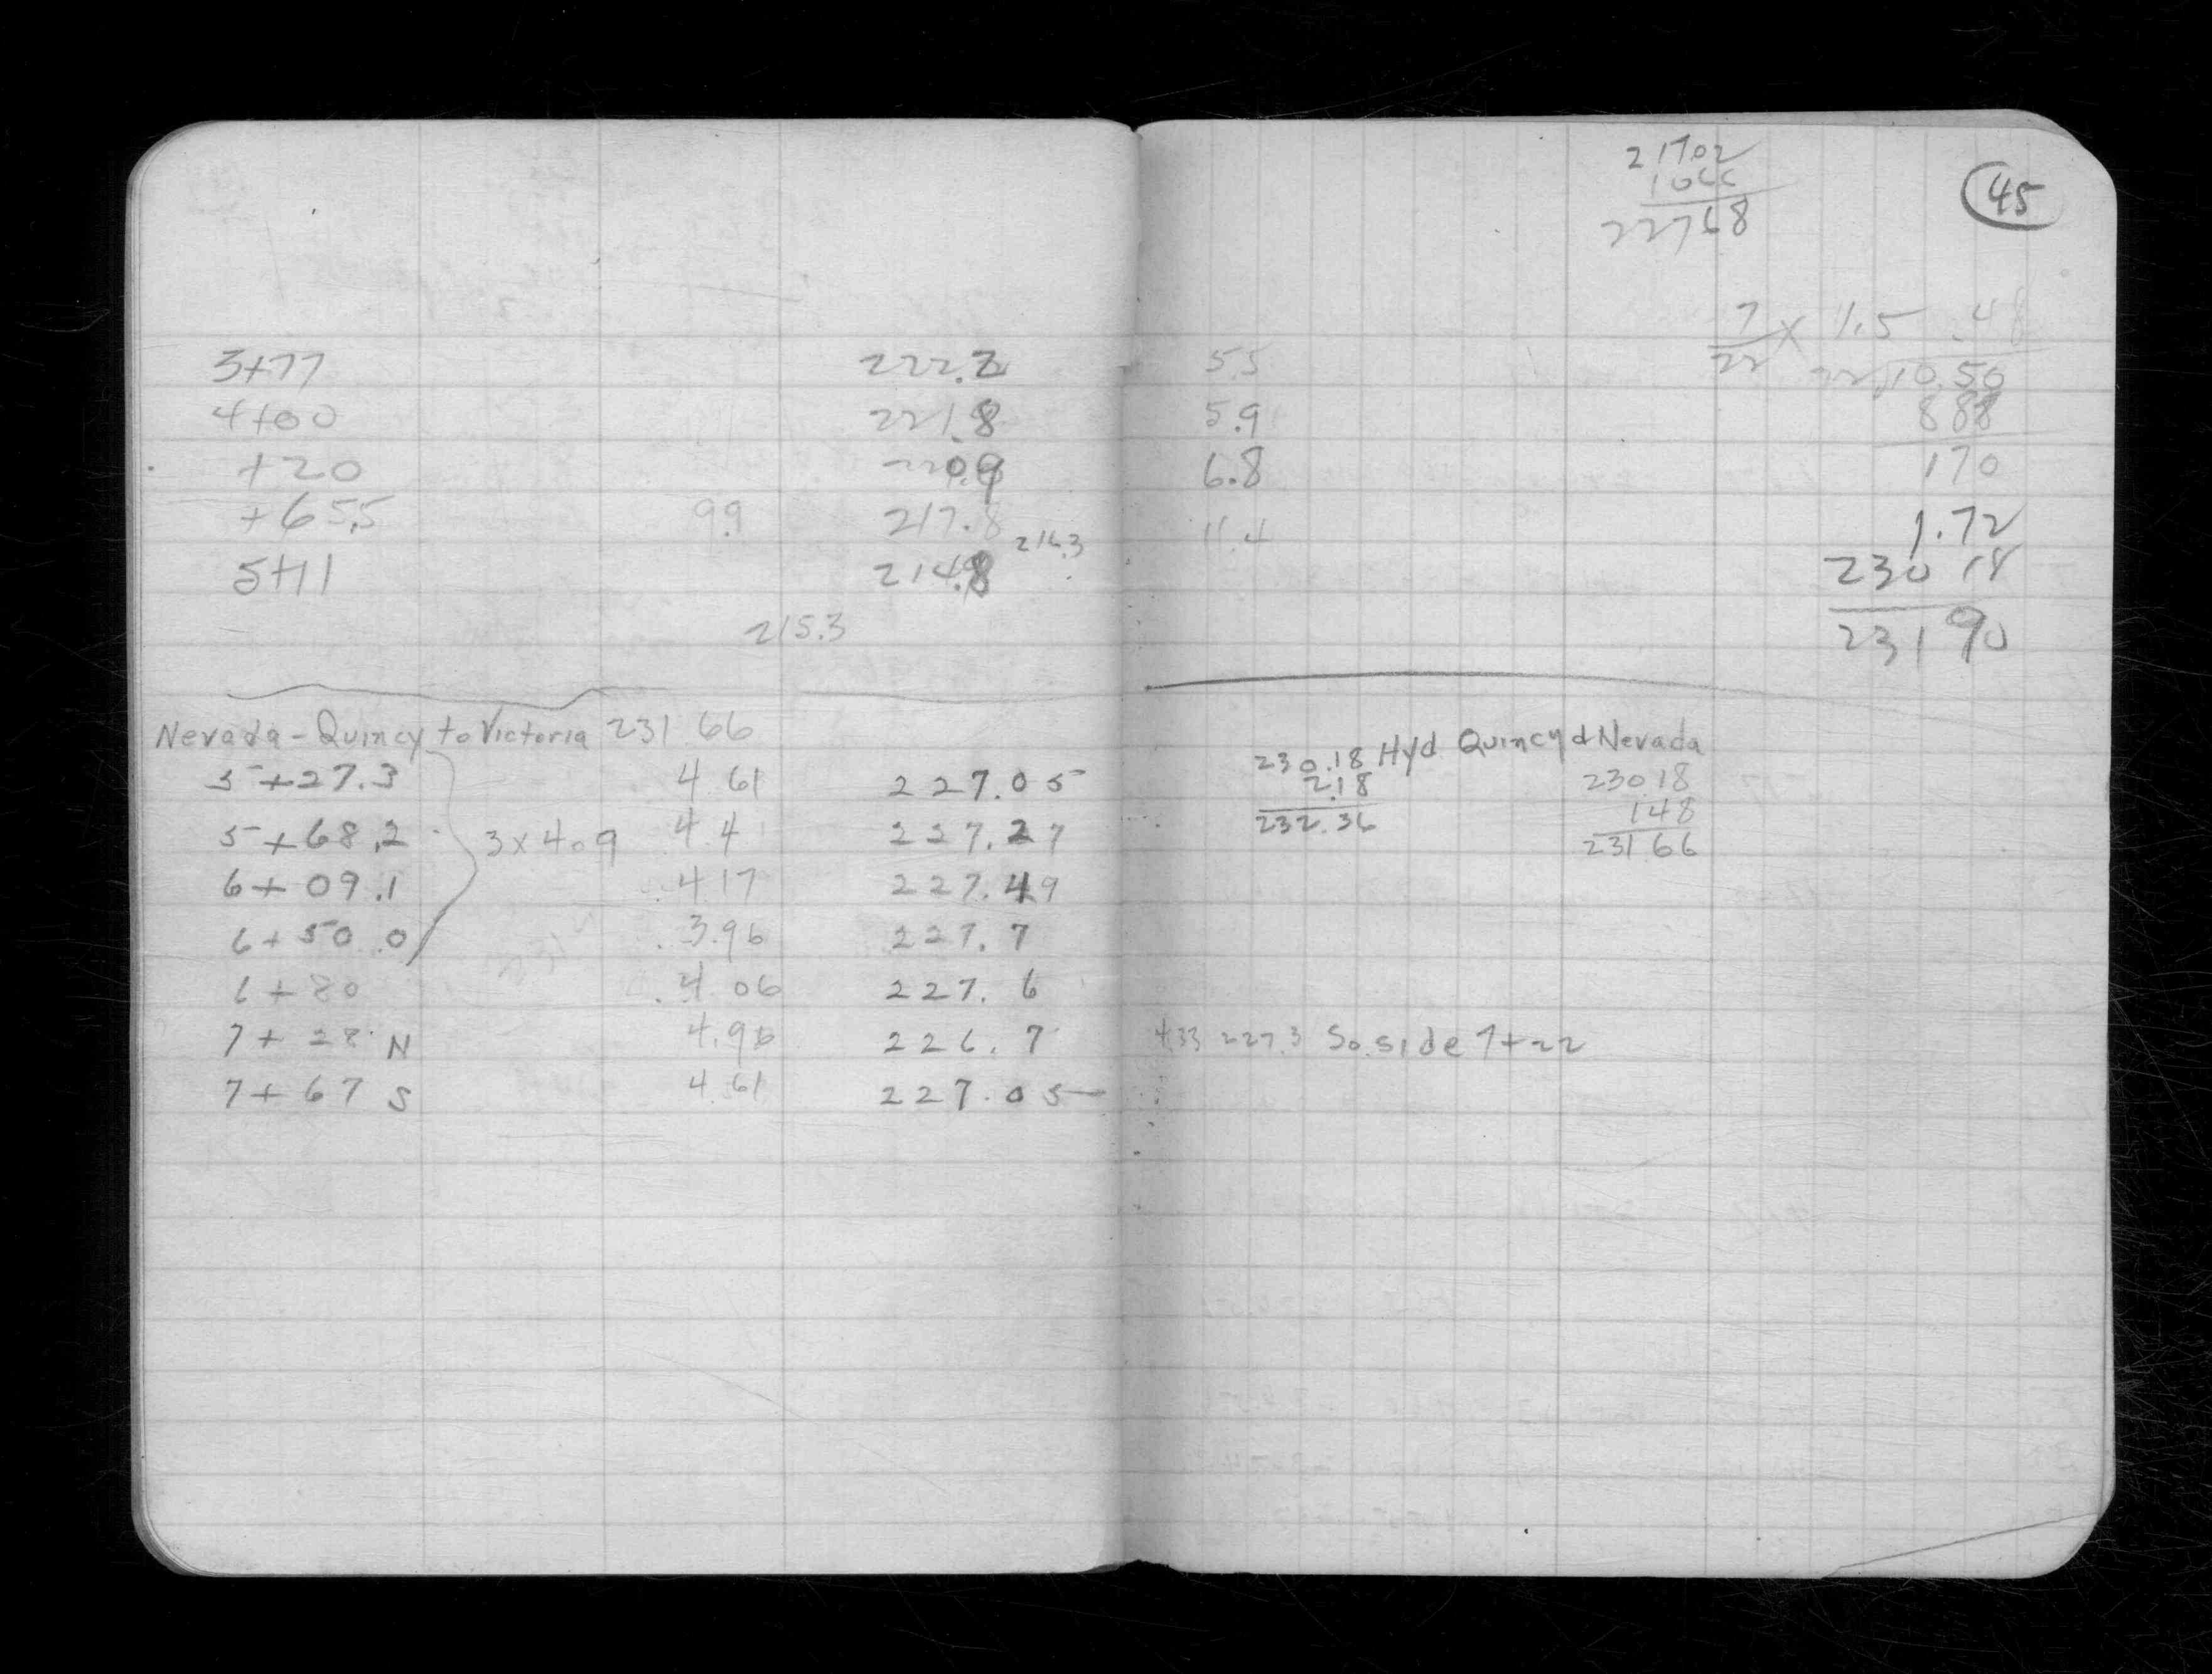 3+77 222.2
4+00 221.8
+20 220.9
+65.5 9.9 217.8 216.3
5+11 214.8
215.3
Nevada - Quincy to Victoria 231 66
5+27.3 4 61 227.05
5+68.2 3x40 9 4 4 227.27
6+09.1 4 17 227.49
6+50.0 3.96 227.7
6+80 4 06 227.6
7+28 N 4.96 226.7
7+67 S 4.61 227.05
45
21702
1066
22768
7/22 x 1.5 .48
22 10.50
5.5
888
5.9
170
6.8
1.72
11.4
230 18
231 90
230.18 Hyd Quincy & Nevada
2.18
232.36
230 18
148
231 66
4.33 227.3 So. side 7+22